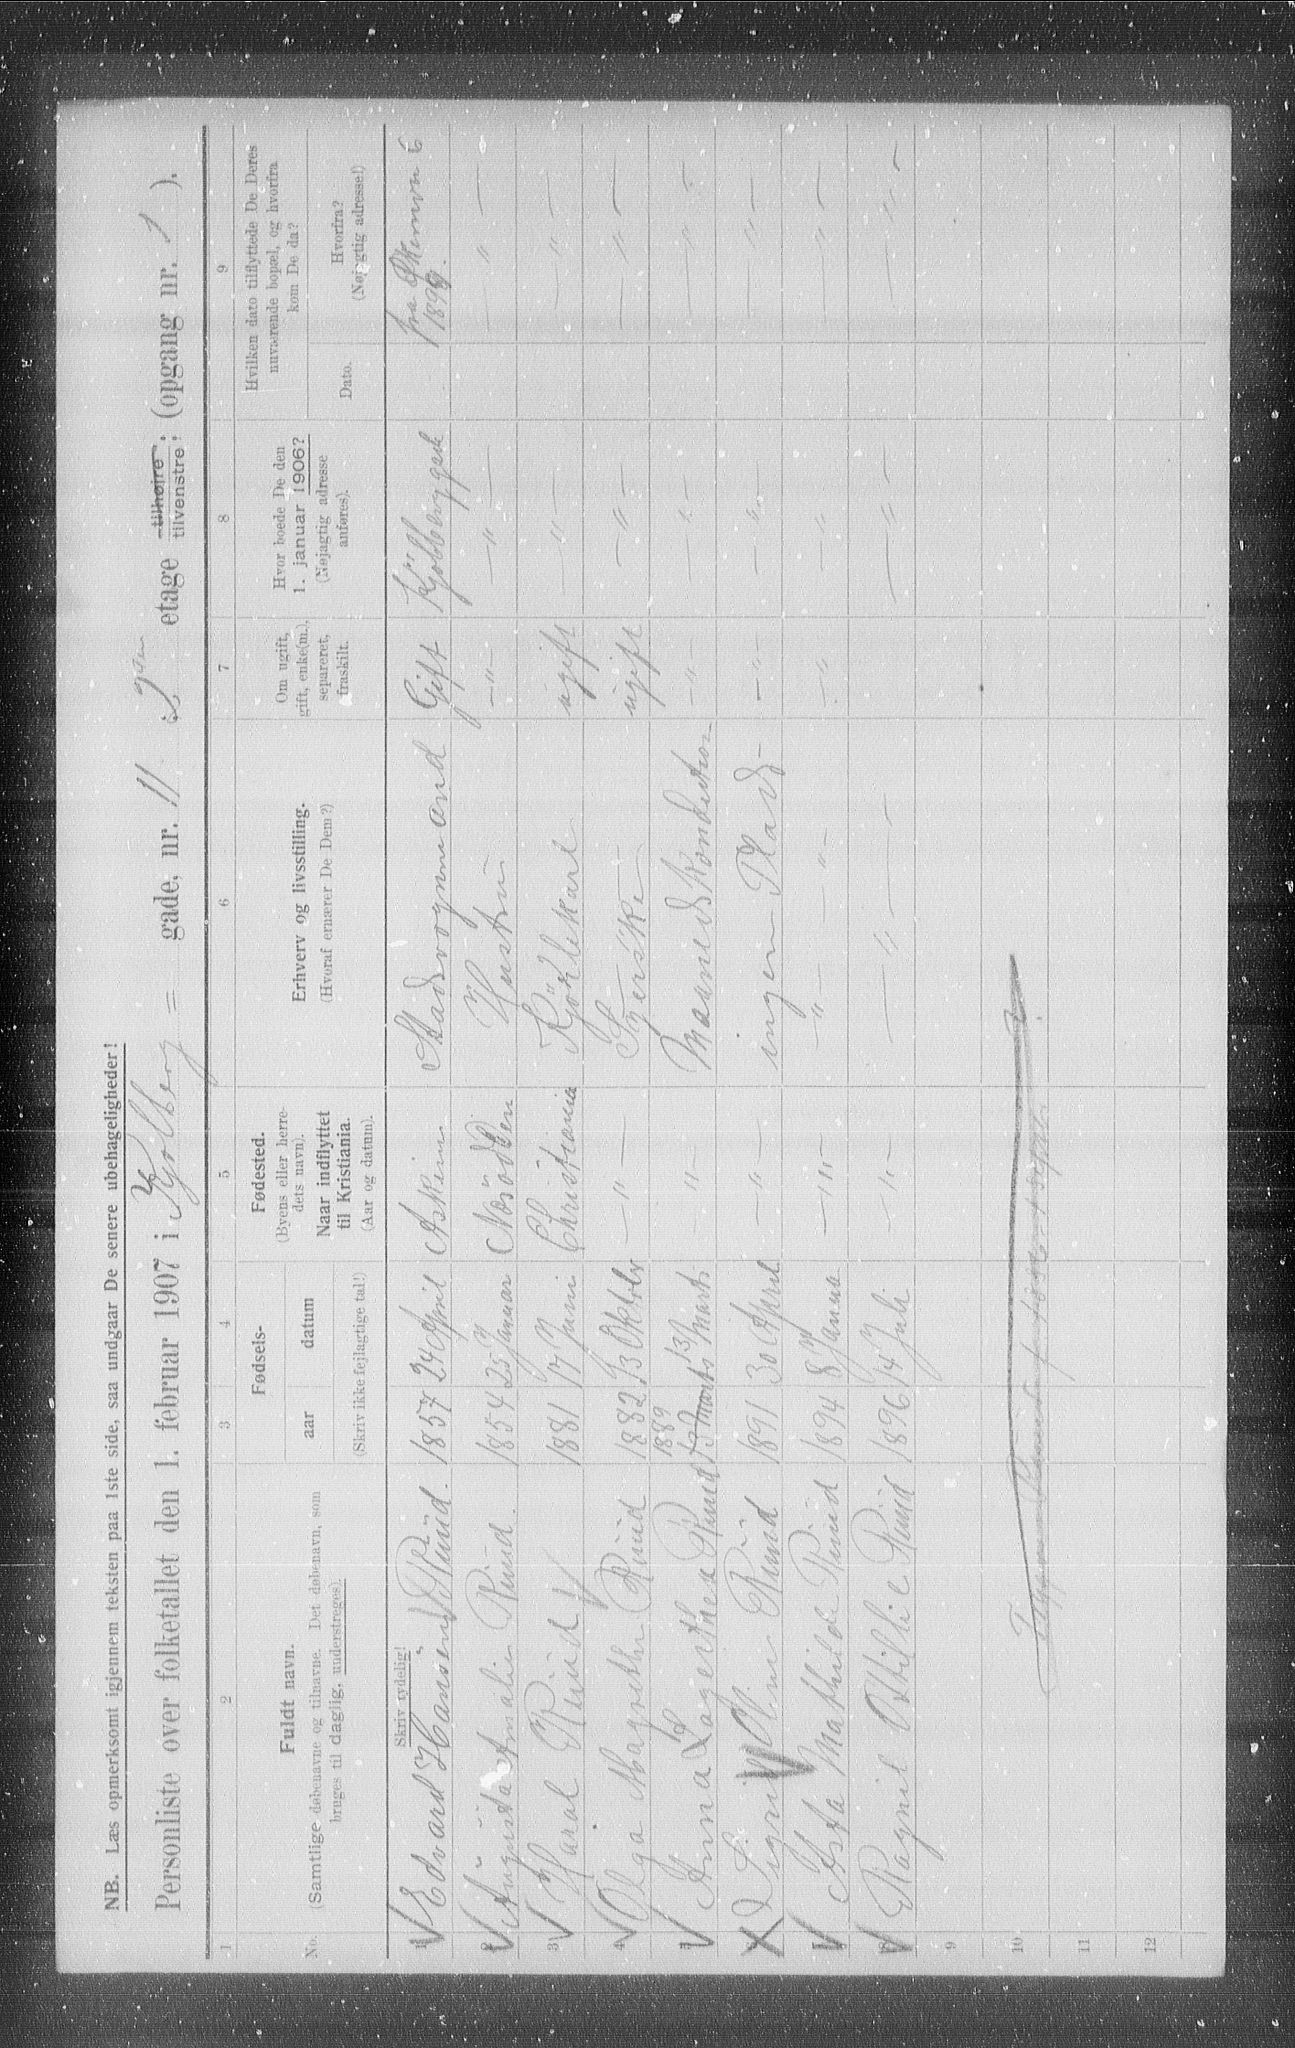 NB. Læs opmerksomt igjennem teksten paa 1ste side, saa undgaar De senere ubehageligheder!
Personliste over folketallet den 1. februar 1907 i Kjølberg = gade, nr. 11 2den etage tilhøire, tilvenstre, (opgang nr. 1 ).
1 2 3 4 5 6 7 8 9
No.
Fuldt navn.
(Samtlige døbenavne og tilnavne. Det døbenavn, som
bruges til daglig, understreges).
Skriv tydelig!
Fødsels-
aar datum
(Skriv ikke fejlagtige tal!)
Fødested.
(Byens eller herre-
dets navn).
Naar indflyttet
til Kristiania.
(Aar og datum).
Erhverv og livsstilling.
(Hvoraf ernærer De Dem?)
Om ugift,
gift, enke(m.),
separeret,
fraskilt.
Hvor boede De den
1. januar 1906?
(Nøjagtig adresse
anføres).
Hvilken dato tilflyttede De Deres
nuværende bopæl, og hvorfra
kom De da?
Dato.
Hvorfra?
(Nøjagtig adresse!)
1 Edvard Hansen Ruud. 1857 24 April Askim Stadsvognmand Gift fra 6
1899.
2 Augusta Amalie Ruud. 1854 25 Januar Nesodden Hustru — " — — " — — " —
3 Haral Ruud 1881 17 Juni Christiania ugift — " — — " —
4 Olga Magrethe Ruud 1882 13 Oktober — " — ugift — " — — " —
1889
5 Anna Lagerthea Ruud 13 Marts 13 Marts " — " — " — — " —
6 Sigri Oline Ruud 1891 30 April — " ingen Plads — " — — " — — " —
7 Asta Mathilde Ruud 1894 8 Janua — " — — " — — " — — " — — " —
8 Ragnil Othilie Ruud 1896 14 Juli — " — — " — — " — — " —
9
10
11
12